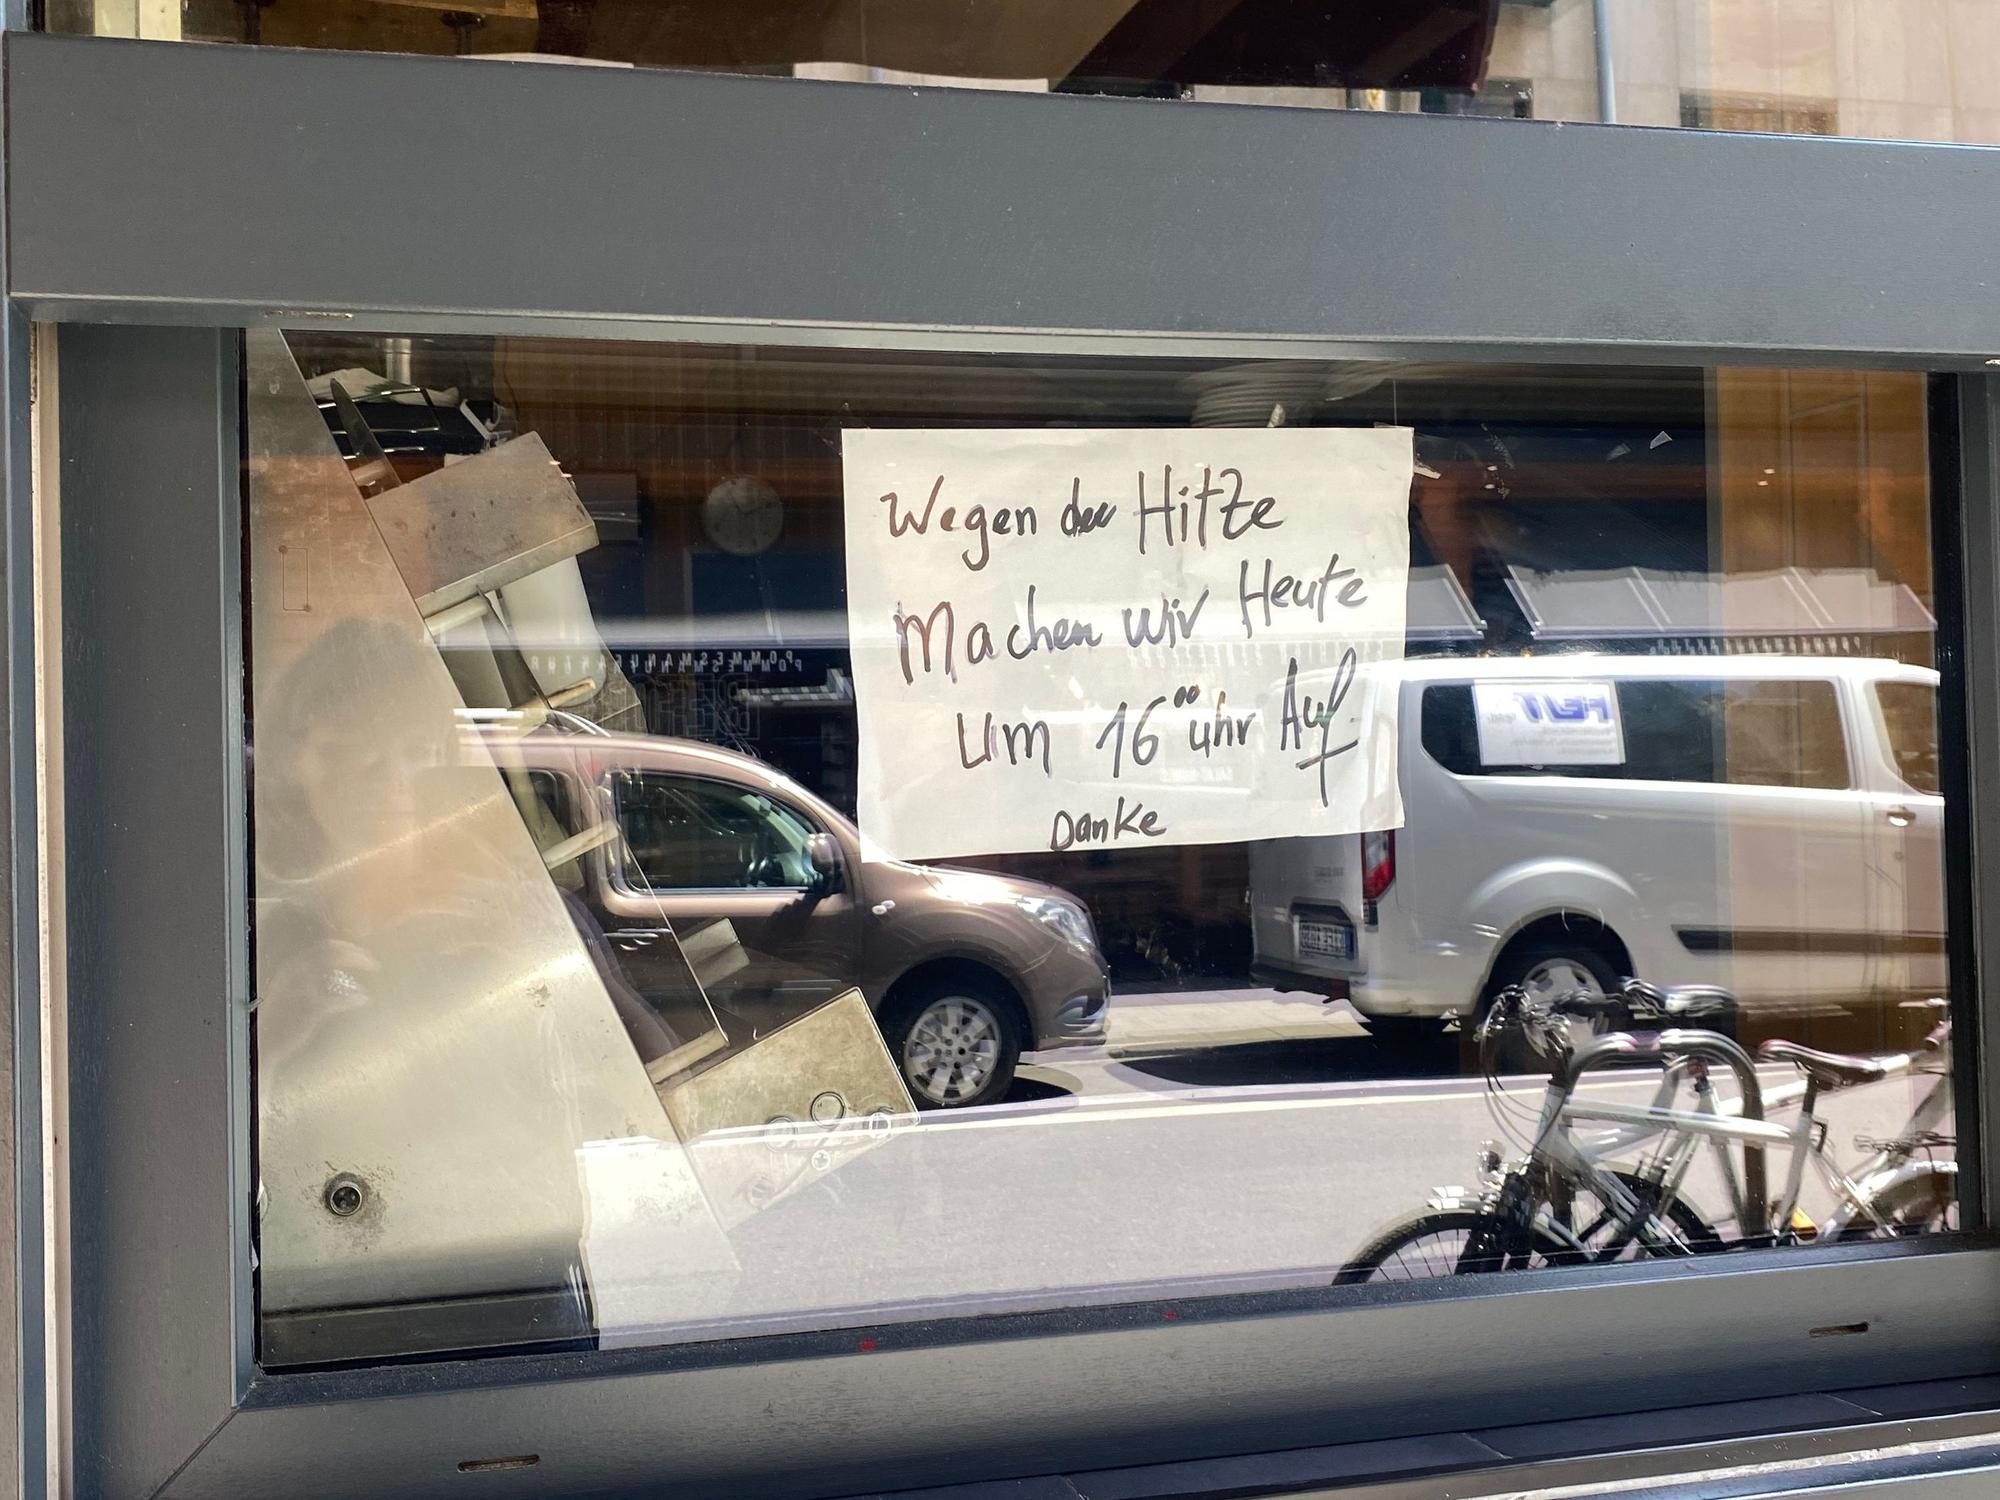 Wegen der Hitze
Machen wir Heute
um 16°° uhr Auf
Danke
POMMESMANUFAKTUR